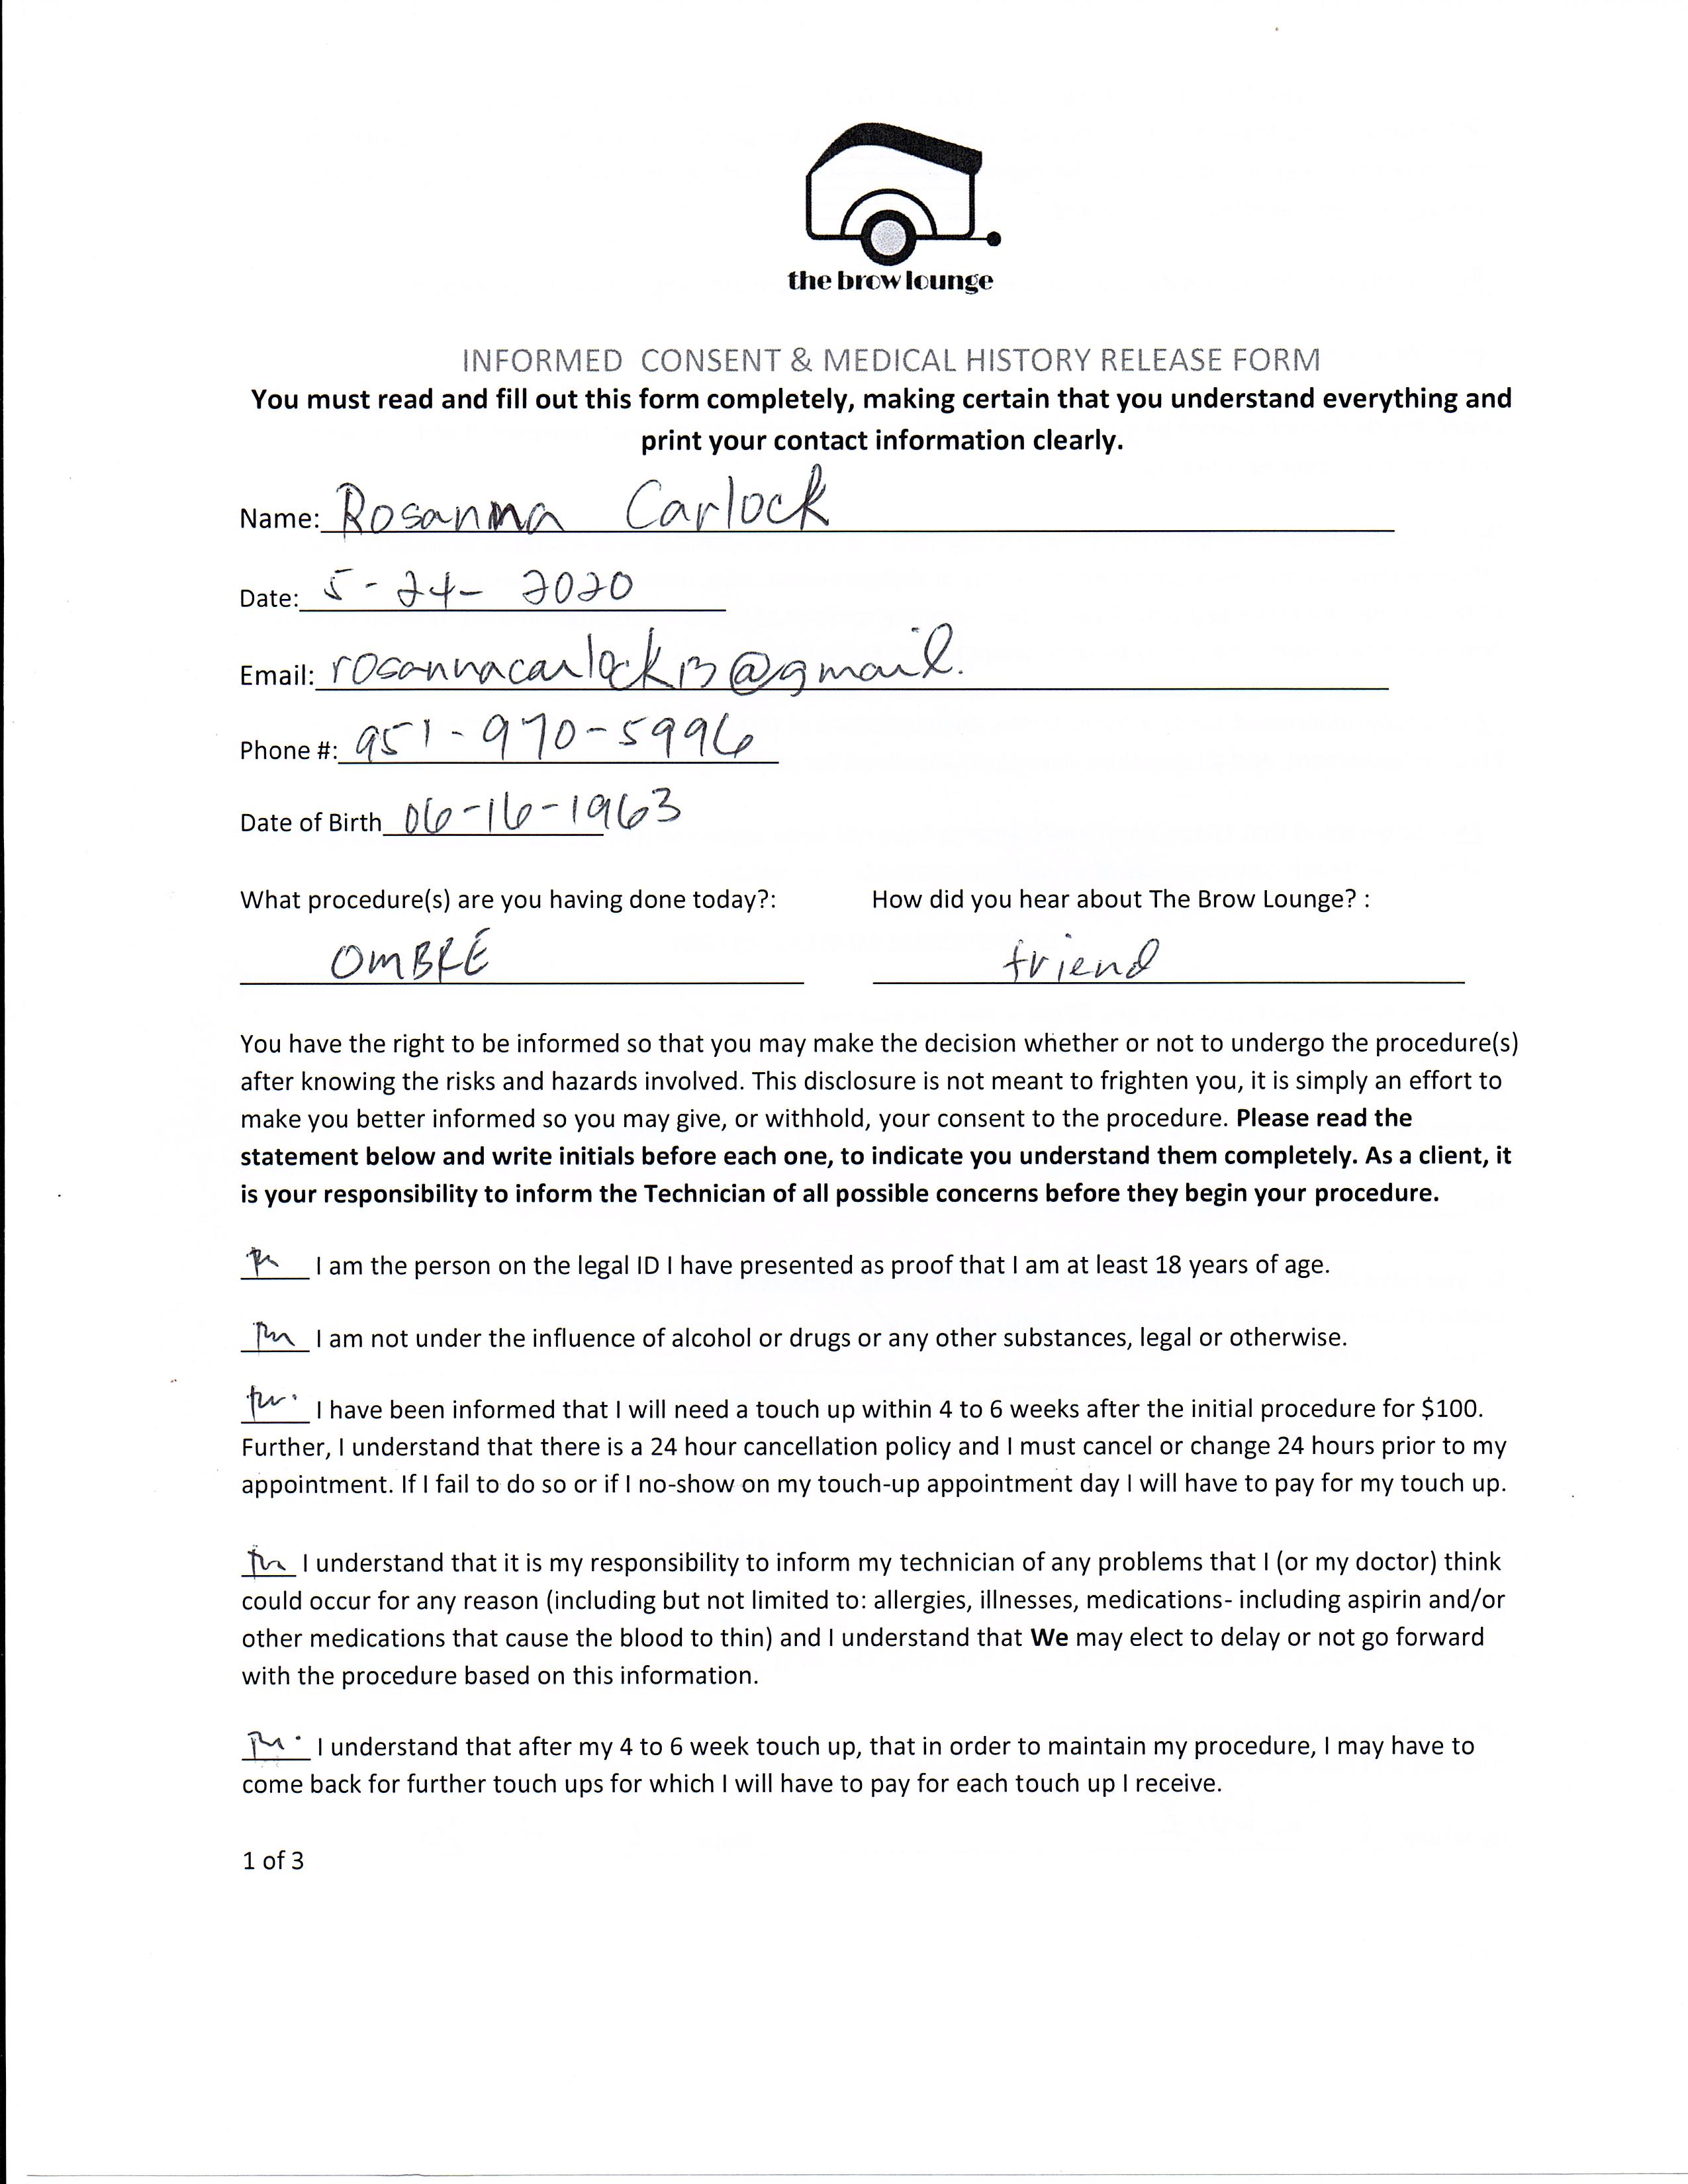 the brow lounge
INFORMED CONSENT & MEDICAL HISTORY RELEASE FORM
You must read and fill out this form completely, making certain that you understand everything and
print your contact information clearly.
Name: Rosanna Carlock
Date: 5-24-2020
Email: rosannacarlock13@gmail.
Phone #: 951-970-5996
Date of Birth 06-16-1963
What procedure(s) are you having done today?: How did you hear about The Brow Lounge? :
OMBRÉ friend
You have the right to be informed so that you may make the decision whether or not to undergo the procedure(s)
after knowing the risks and hazards involved. This disclosure is not meant to frighten you, it is simply an effort to
make you better informed so you may give, or withhold, your consent to the procedure. Please read the
statement below and write initials before each one, to indicate you understand them completely. As a client, it
is your responsibility to inform the Technician of all possible concerns before they begin your procedure.
I am the person on the legal ID I have presented as proof that I am at least 18 years of age.
I am not under the influence of alcohol or drugs or any other substances, legal or otherwise.
I have been informed that I will need a touch up within 4 to 6 weeks after the initial procedure for $100.
Further, I understand that there is a 24 hour cancellation policy and I must cancel or change 24 hours prior to my
appointment. If I fail to do so or if I no-show on my touch-up appointment day I will have to pay for my touch up.
I understand that it is my responsibility to inform my technician of any problems that I (or my doctor) think
could occur for any reason (including but not limited to: allergies, illnesses, medications- including aspirin and/or
other medications that cause the blood to thin) and I understand that We may elect to delay or not go forward
with the procedure based on this information.
I understand that after my 4 to 6 week touch up, that in order to maintain my procedure, I may have to
come back for further touch ups for which I will have to pay for each touch up I receive.
1 of 3